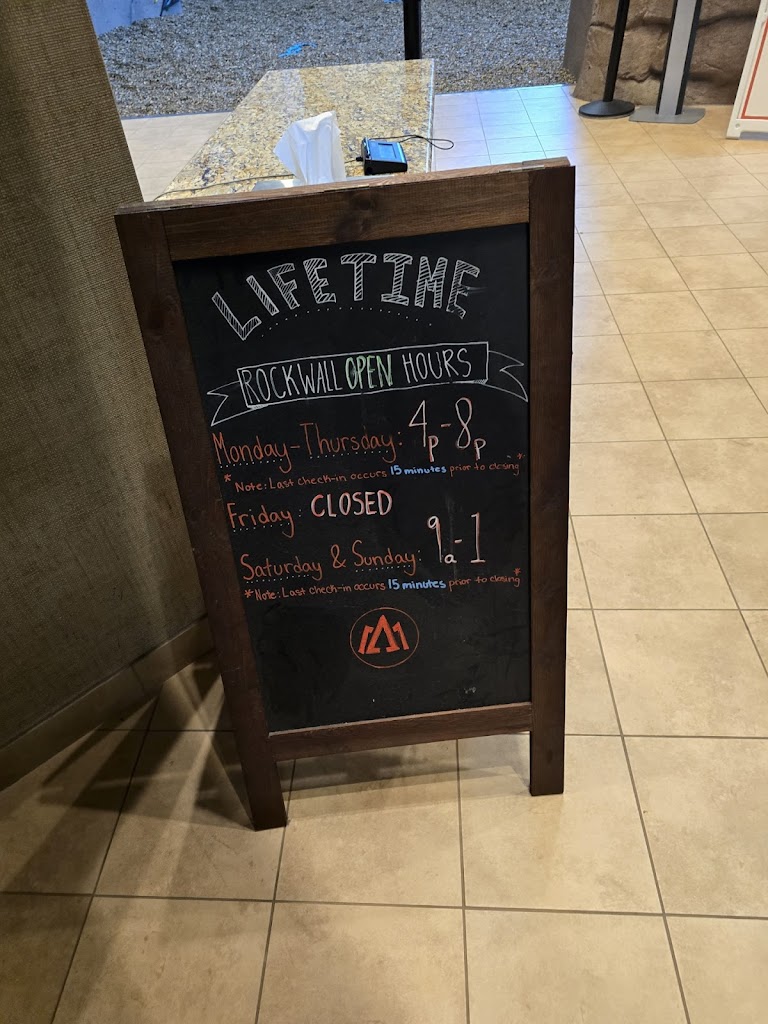 LIFETIME
ROCKWALL OPEN HOURS
Monday-Thursday: 4p-8p
* Note: Last check-in occurs 15 minutes prior to closing *
Friday: CLOSED
Saturday & Sunday: 9a-1
* Note: Last check-in occurs 15 minutes prior to closing *